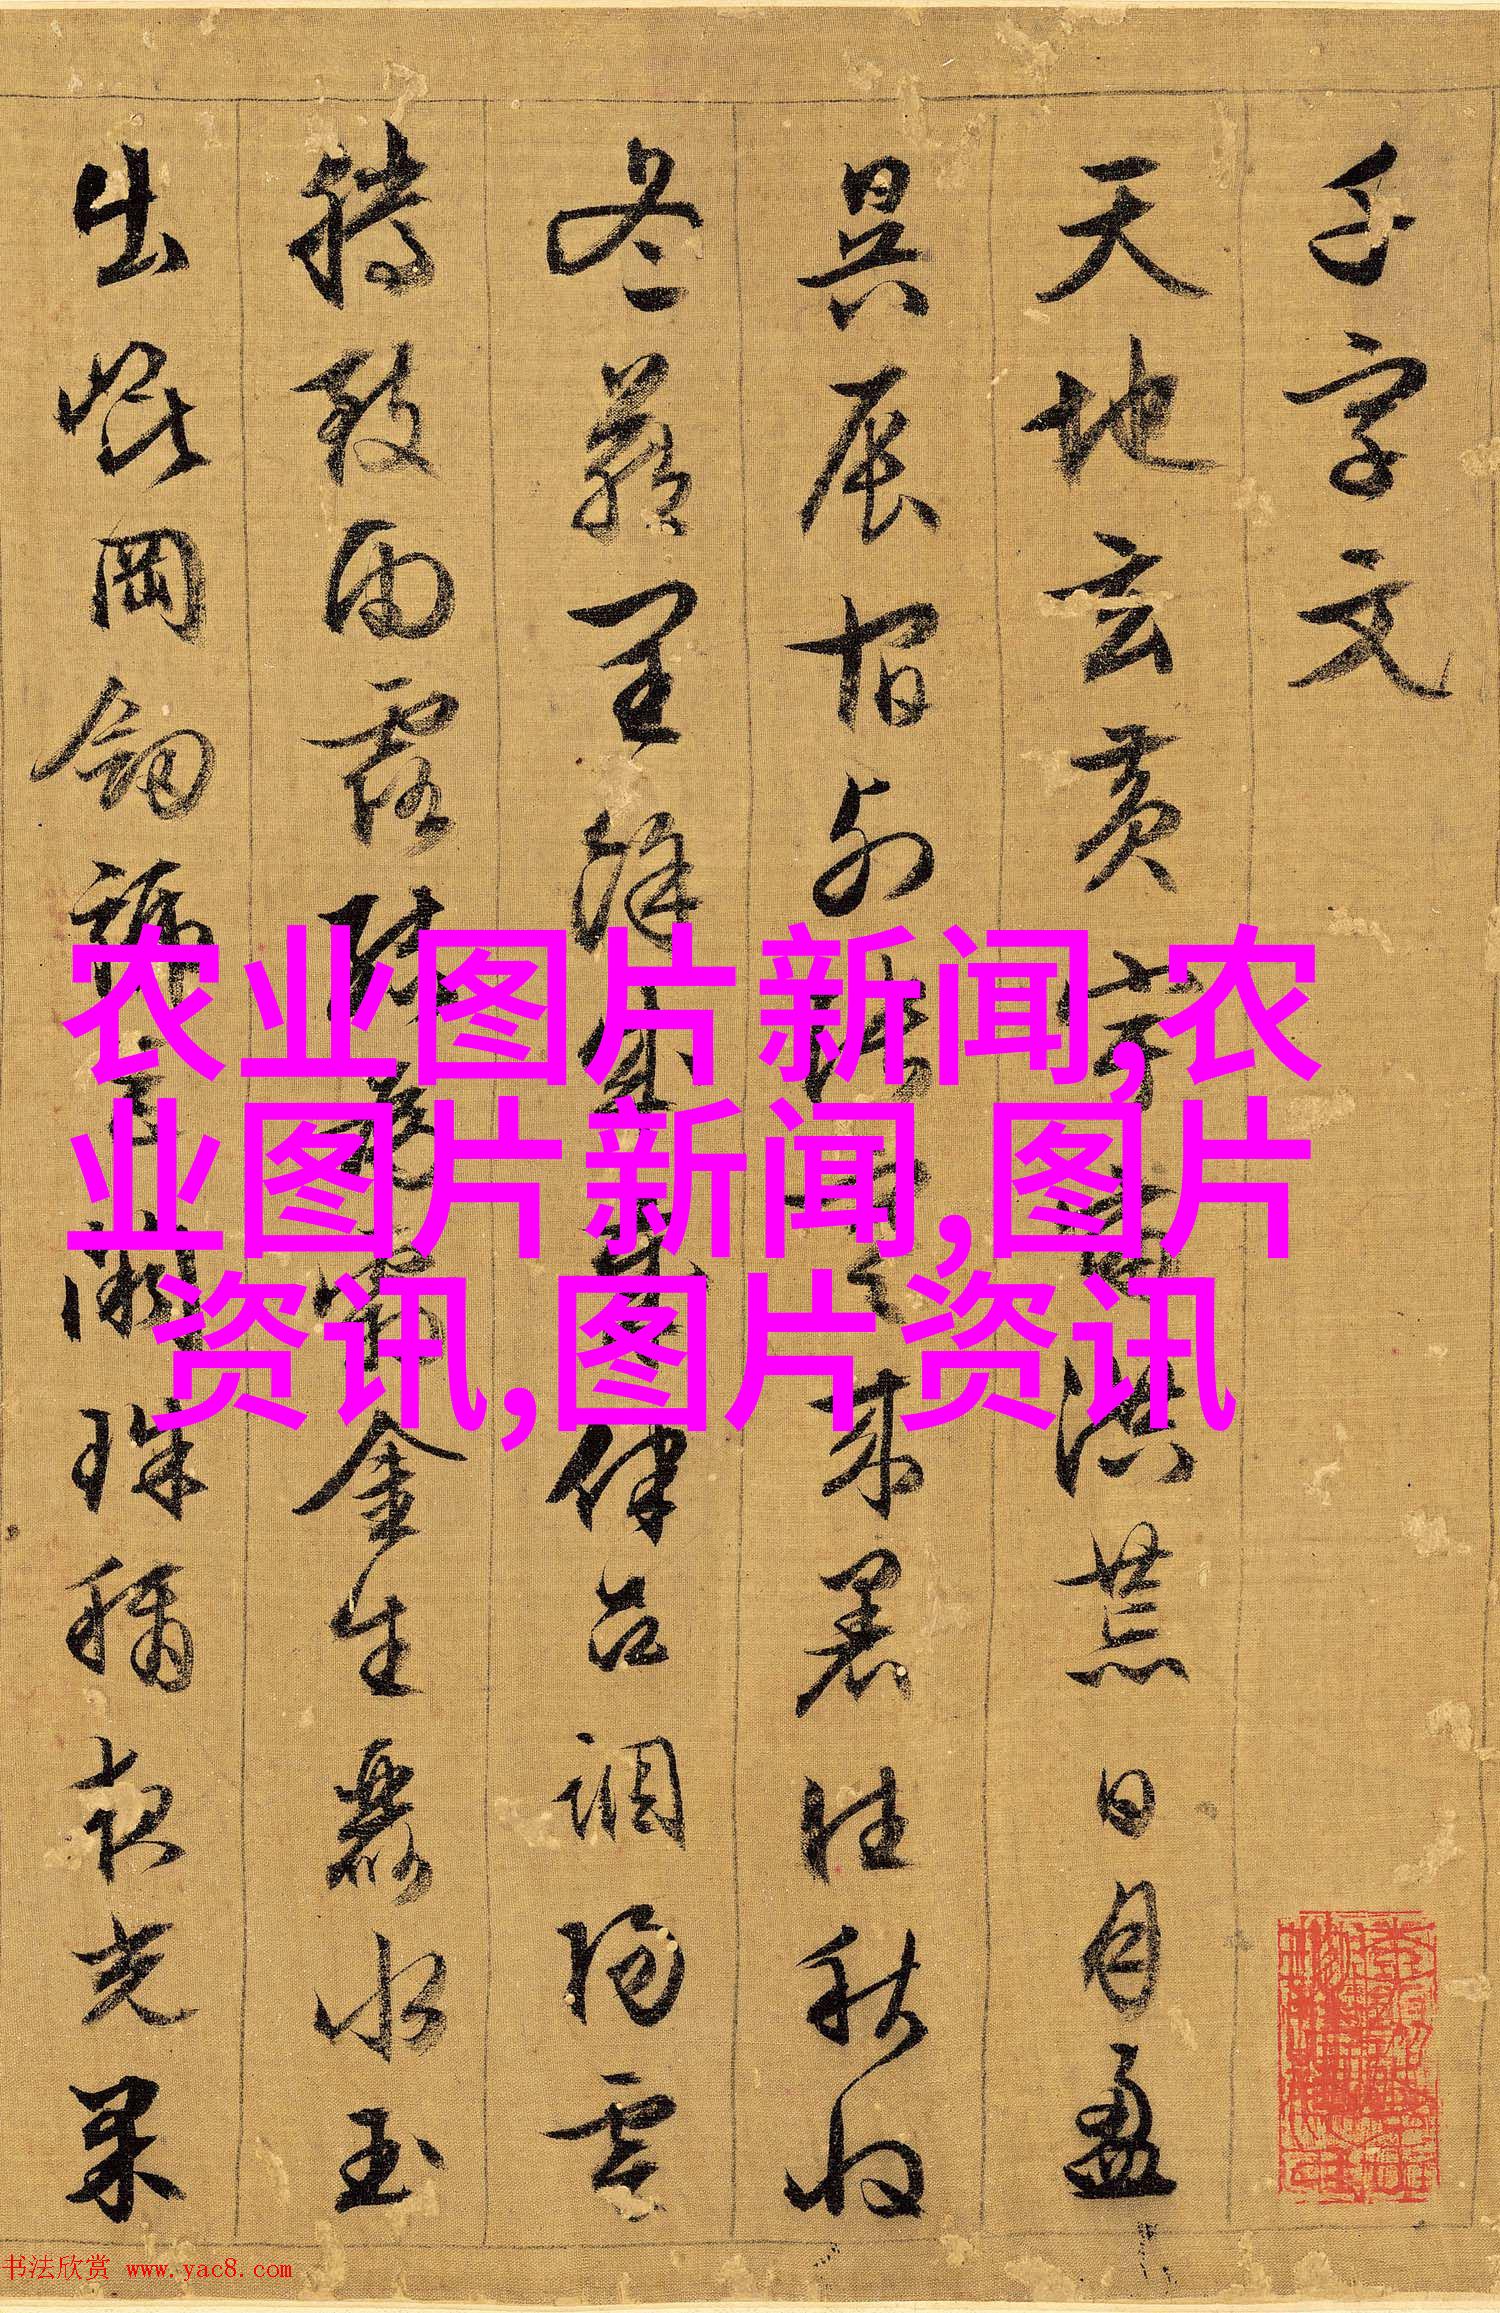 千字文
天地玄黄宇宙洪荒日月盈
昃辰宿列張寒来暑往秋收
冬藏閏餘成歲律吕調陽雲
騰致雨露結為霜金生麗水玉
出崑岡劒號巨闕珠稱夜光果
农业图片新闻,农
业图片新闻,图片
资讯,图片资讯
书法欣赏 www.yac8.com